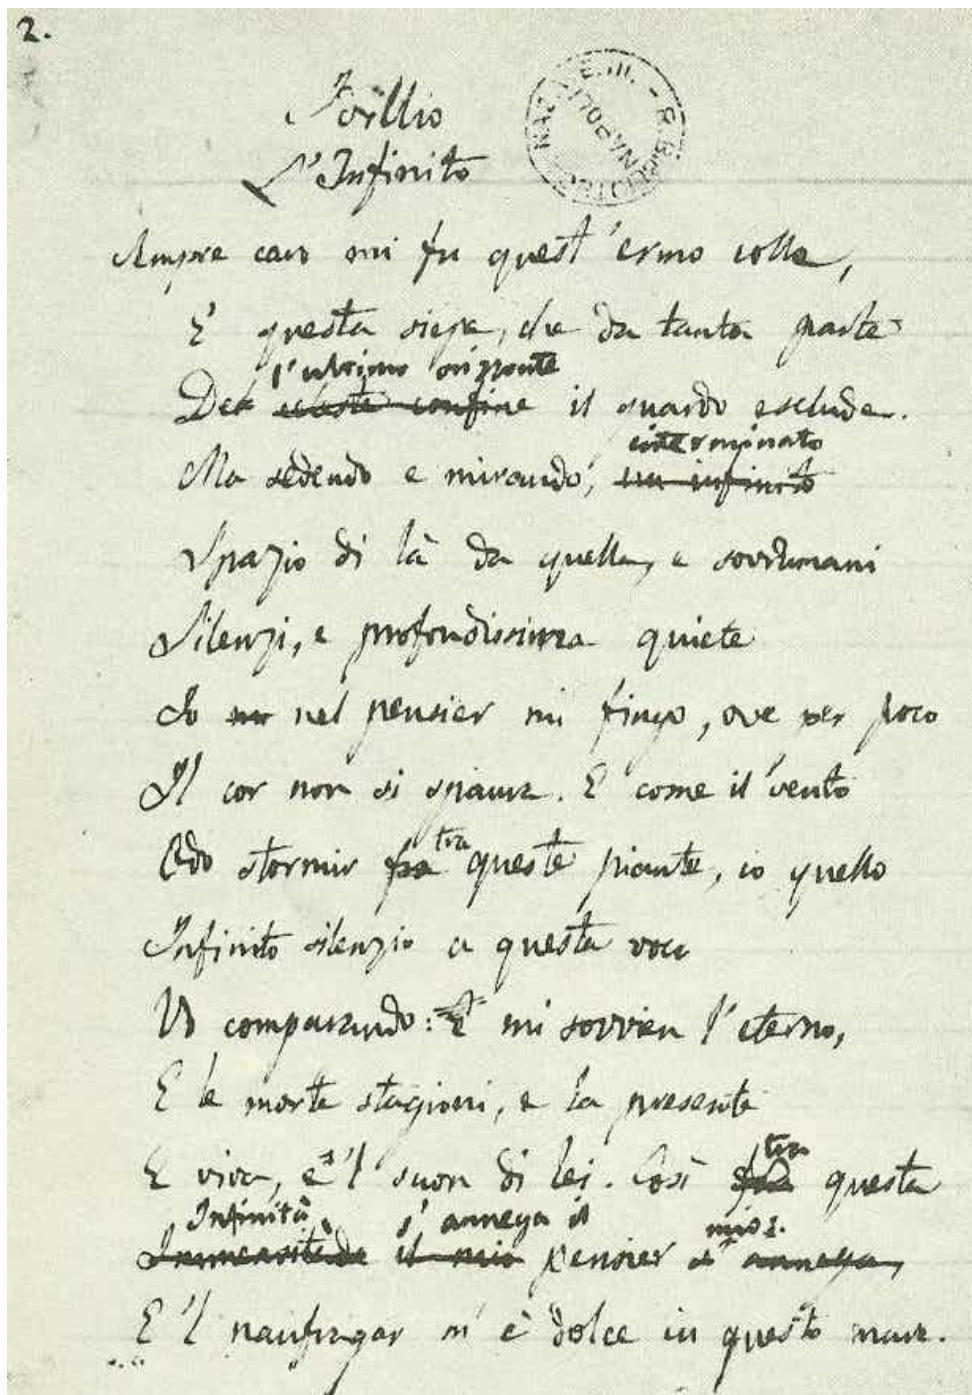 2.
Idillio
L'Infinito
Sempre caro mi fu quest'ermo colle,
E questa siepe, che da tanta parte
l'ultimo orizzonte
Del celeste confine il guardo esclude.
interminato
Ma sedendo e mirando, un infinito
Spazio di là da quella, e sovrumani
Silenzi, e profondissima quiete
Io nel pensier mi fingo, ove per poco
Il cor non si spaura. E come il vento
tra
Odo stormir fra queste piante, io quello
Infinito silenzio a questa voce
Vo comparando: E mi sovvien l'eterno,
E le morte stagioni, e la presente
tra
E viva, e 'l suon di lei. Così fra questa
Infinità s'annega il mio:
Immensità il mio pensier s'annega,
E 'l naufragar m'è dolce in questo mare.